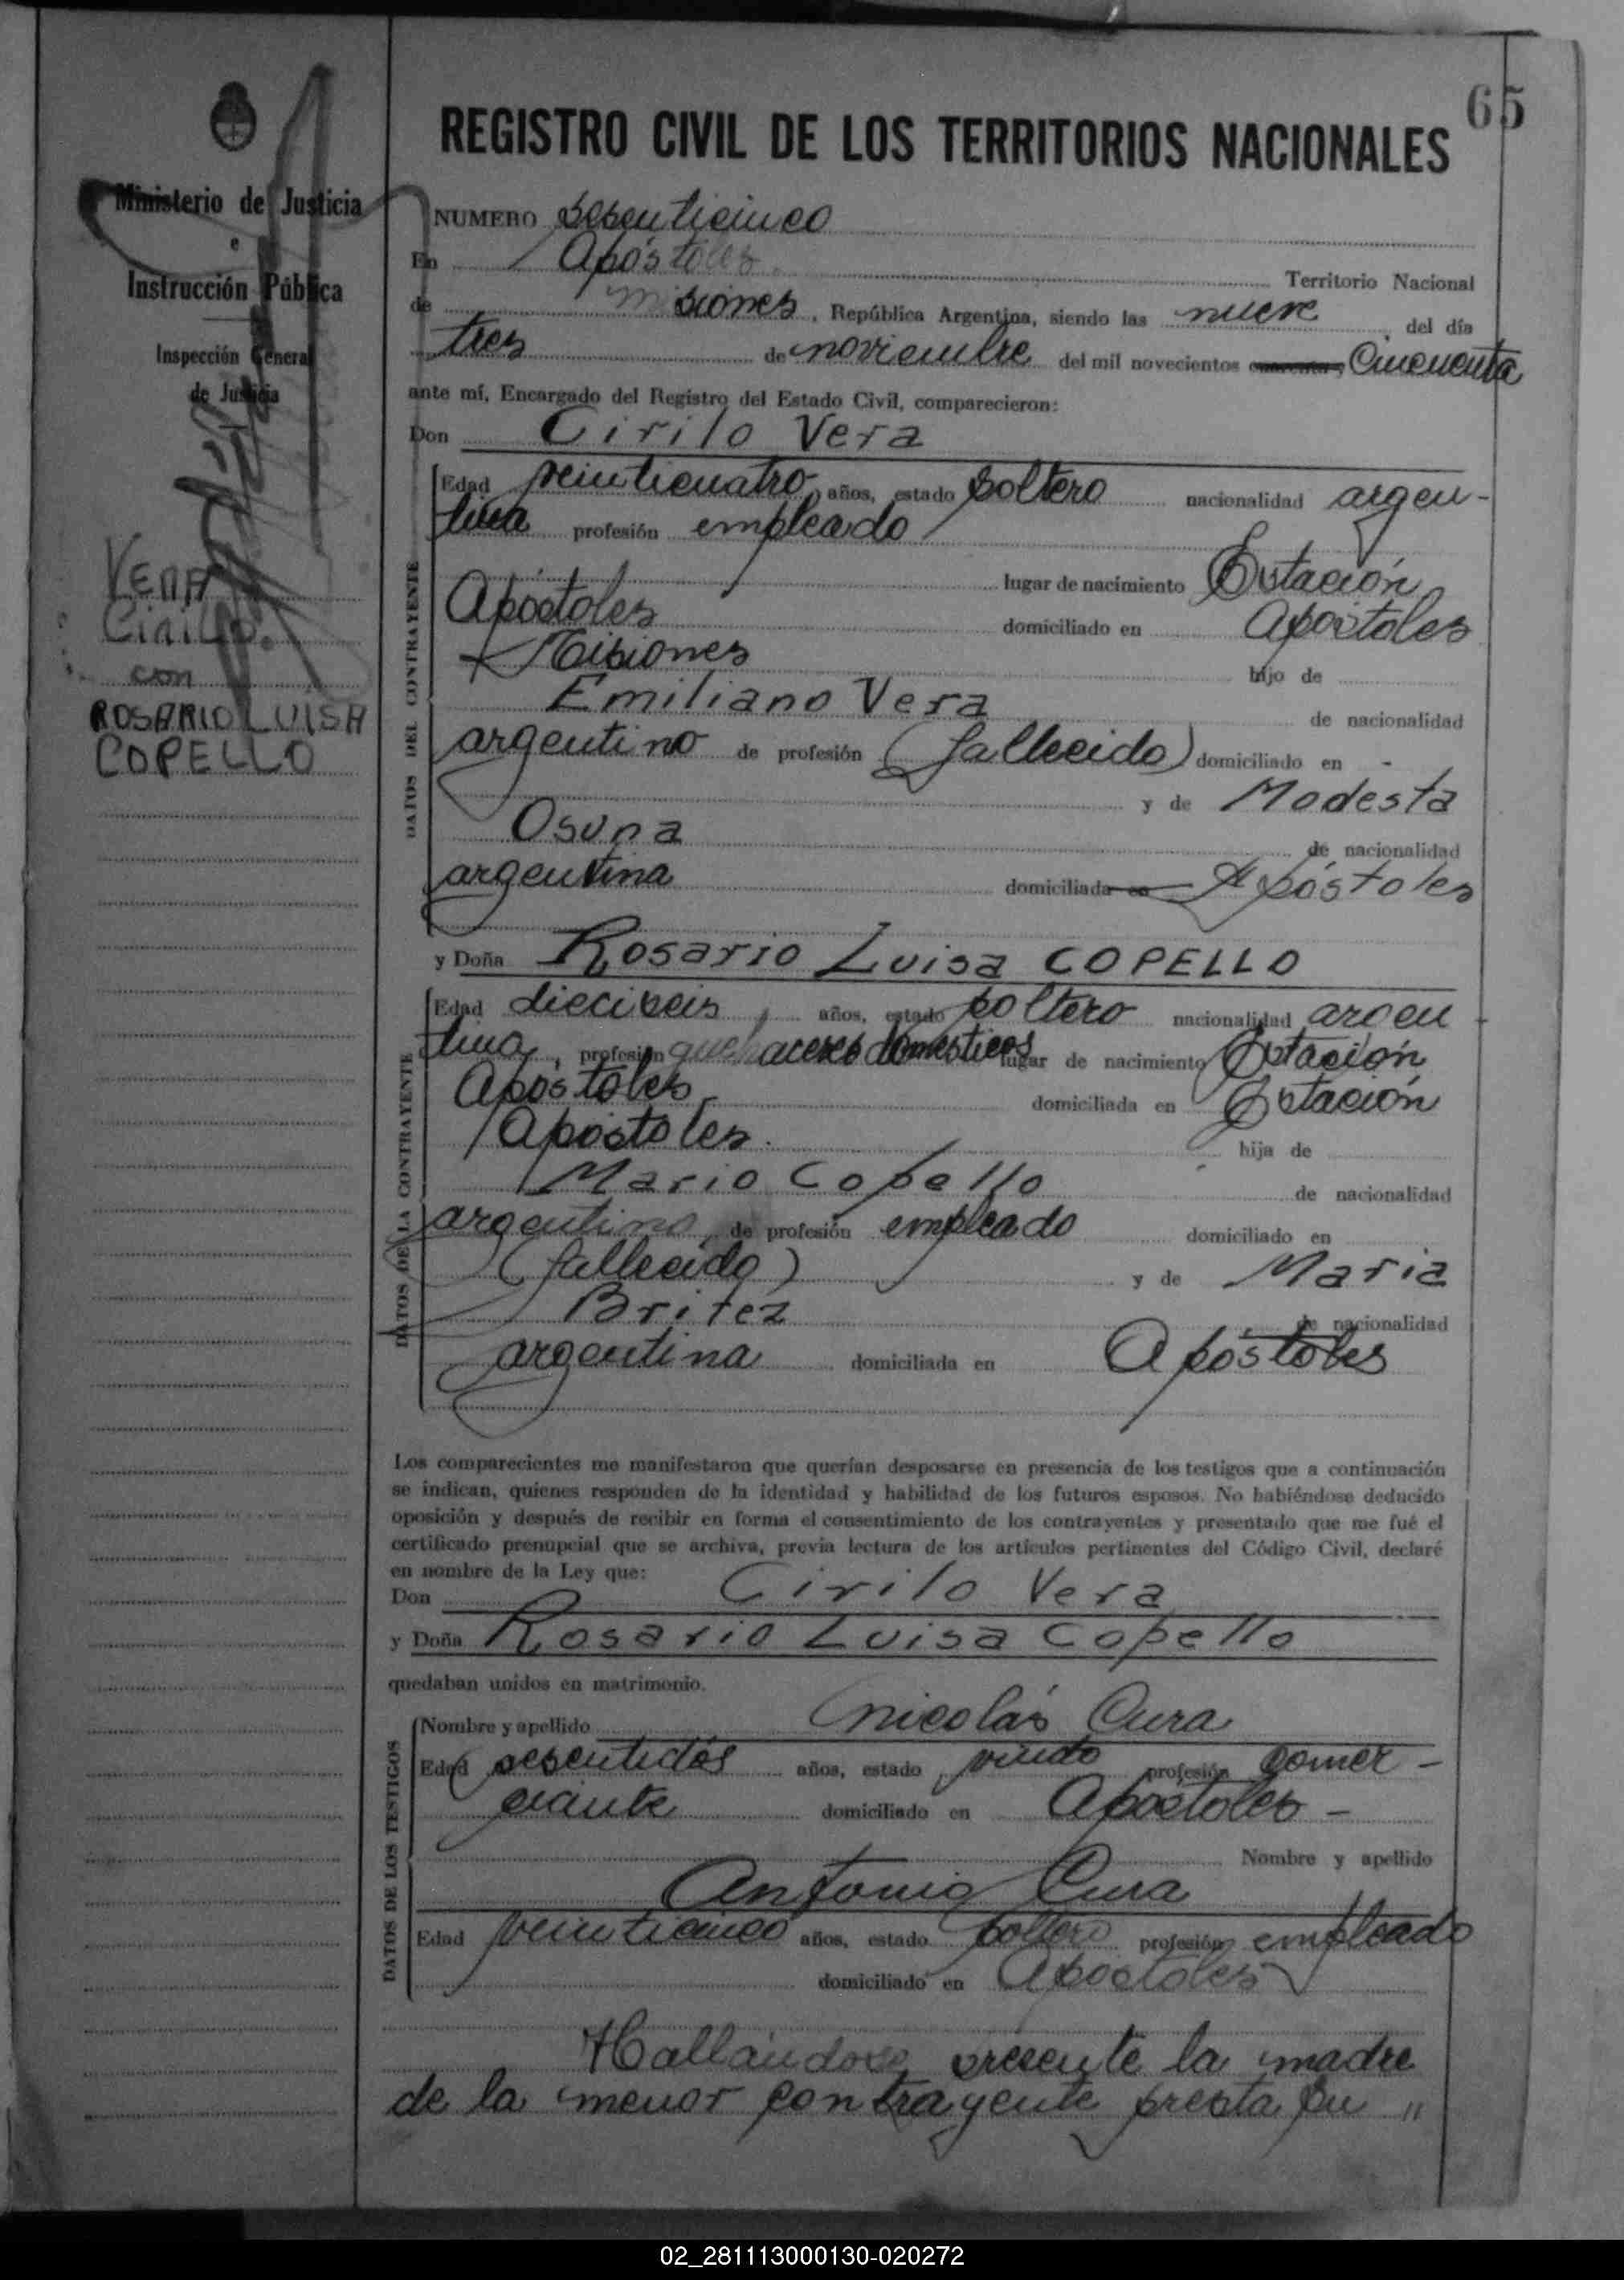 65
REGISTRO CIVIL DE LOS TERRITORIOS NACIONALES
Ministerio de Justicia
e
Instrucción Pública
Inspección General
de Justicia
VERA
Cirilo.
con
ROSARIO LUISA
COPELLO
NUMERO sesenticinco
En Apóstoles Territorio Nacional
de misiones, República Argentina, siendo las nueve del día
tres de noviembre del mil novecientos cuarenta y Cincuenta
ante mí, Encargado del Registro del Estado Civil, comparecieron:
Don Cirilo Vera
DATOS DEL CONTRAYENTE
Edad veinticuatro años, estado soltero nacionalidad argen-
tina profesión empleado
lugar de nacimiento Estación
Apóstoles domiciliado en Apóstoles
Misiones hijo de
Emiliano Vera de nacionalidad
argentino de profesión (fallecido) domiciliado en -
y de Modesta
Osuna de nacionalidad
argentina domiciliada en Apóstoles
y Doña Rosario Luisa COPELLO
DATOS DE LA CONTRAYENTE
Edad dieciseis, años, estado soltero nacionalidad argen
tina, profesión quehaceres domesticos lugar de nacimiento Estación
Apóstoles domiciliada en Estación
Apóstoles. hija de
Mario Copello de nacionalidad
argentino, de profesión empleado domiciliado en
(fallecido) y de Maria
Britez de nacionalidad
argentina domiciliada en Apóstoles
Los comparecientes me manifestaron que querían desposarse en presencia de los testigos que a continuación
se indican, quienes responden de la identidad y habilidad de los futuros esposos. No habiéndose deducido
oposición y después de recibir en forma el consentimiento de los contrayentes y presentado que me fué el
certificado prenupcial que se archiva, previa lectura de los artículos pertinentes del Código Civil, declaré
en nombre de la Ley que:
Don Cirilo Vera
y Doña Rosario Luisa Copello
quedaban unidos en matrimonio.
DATOS DE LOS TESTIGOS
Nombre y apellido Nicolás Cura
Edad sesentidós años, estado viudo profesión comer-
ciante domiciliado en Apóstoles -
Nombre y apellido
Antonio Cura
Edad veinticinco años, estado soltero profesión empleado
domiciliado en Apóstoles
Hallándose presente la madre
de la menor contrayente presta su "
02_281113000130-020272